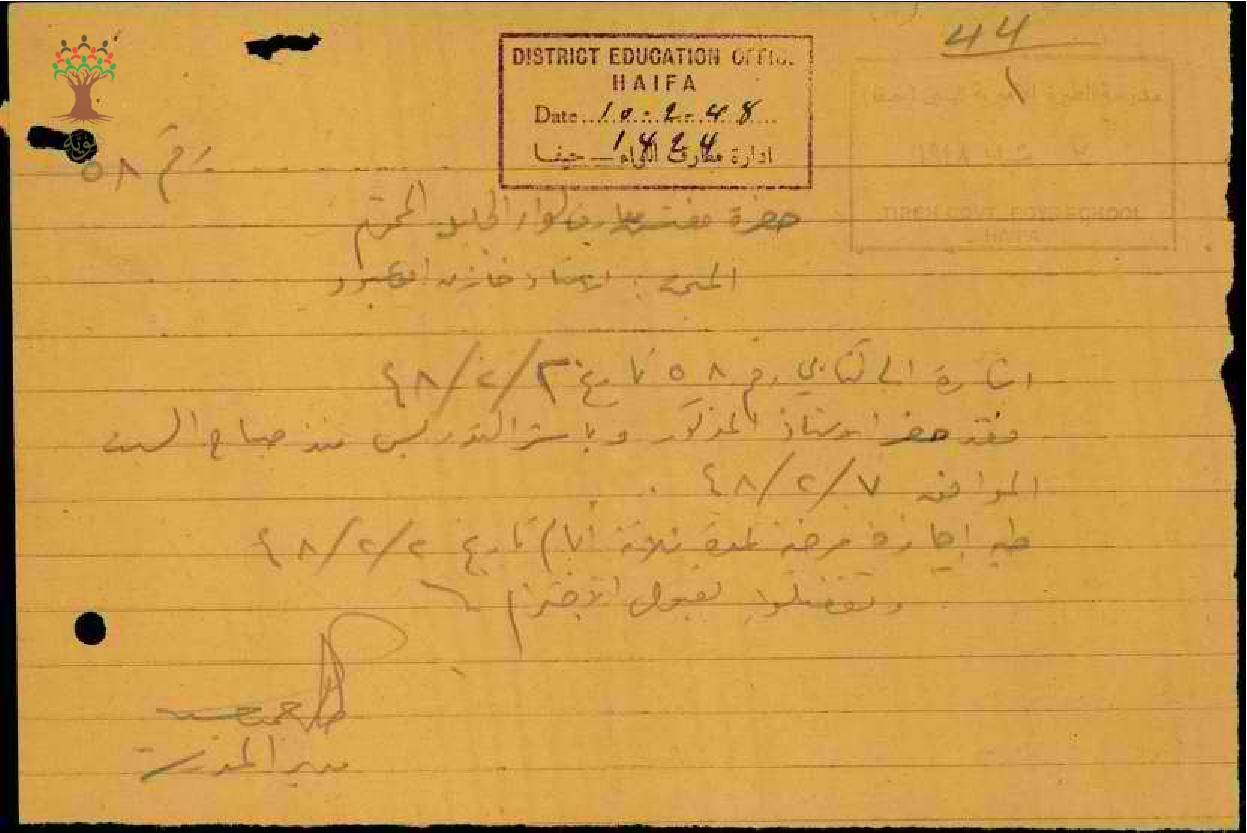 44
1
DISTRICT EDUCATION OFFIC.
HAIFA
Date 10-2-48
1424
ادارة معارف اللواء — حيفا
مدرسة الطيرة الاميرية للبنين (حيفا)
TIREH GOVT. BOYS SCHOOL
HAIFA
رقم ٥٨
حضرة مفتش معارف لواء الجليل المحترم
اشارة الى كتابي رقم ٥٨ تاريخ ٤٨/٢/٣
فقد حضر الاستاذ المذكور وباشر التدريس منذ صباح السبت
الموافق ٤٨/٢/٧ .
طيه اجازة مرضية لمدة ثلاثة أيام تاريخ ٤٨/٢/٢
وتفضلوا بقبول الاحترام
مدير المدرسة